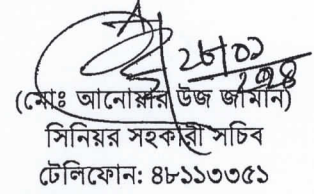 ২৮/০১
(মোঃ আনোয়ার উজ জামান)
সিনিয়র সহকারী সচিব
টেলিফোন: ৪৮১১৩৩৫১